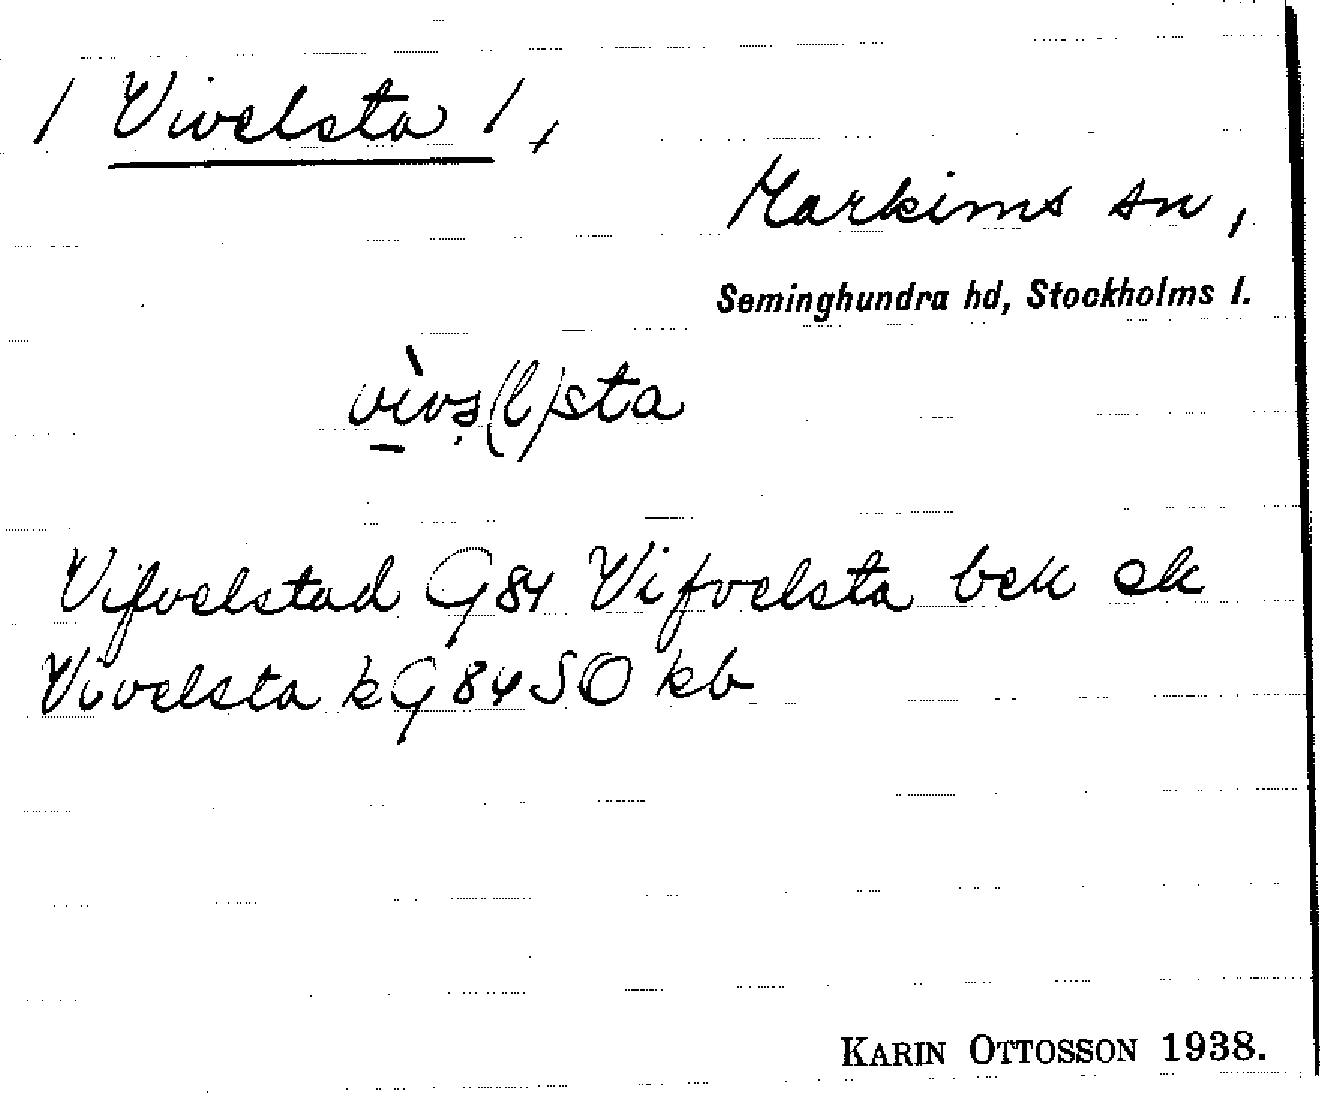 / Vivelsta /,
Markims sn,
Seminghundra hd, Stockholms l.
vì̠və̣(l)sta
Vifvelstad G84 Vifvelsta bek ek
Vivelsta kG84 SO kb
KARIN OTTOSSON 1938.